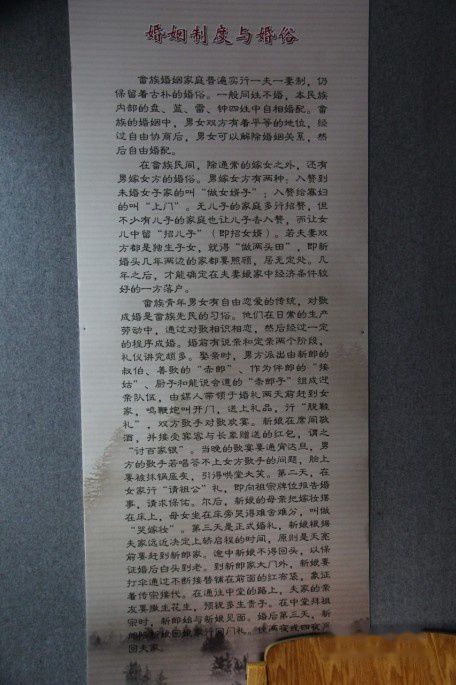 婚姻制度与婚俗
畲族婚姻家庭普遍实行一夫一妻制，仍
保留着古朴的婚俗。一般同姓不婚，本民族
内部的盘、蓝、雷、钟四姓中自相婚配。畲
族的婚姻中，男女双方有着平等的地位，经
过自由协商后，男女可以解除婚姻关系，然
后自由婚配。
在畲族民间，除通常的嫁女之外，还有
男嫁女方的婚俗。男嫁女方有两种：入赘到
未婚女子家的叫“做女婿子”；入赘给寡妇
的叫“上门”。无儿子的家庭多行招赘，但
不少有儿子的家庭也让儿子去入赘，而让女
儿中留“招儿子”（即招女婿）。若夫妻双
方都是独生子女，就得“做两头田”，即新
婚头几年两边的家都要照顾，居无定处。几
年之后，才能确定在夫妻娘家中经济条件较
好的一方落户。
畲族青年男女有自由恋爱的传统，对歌
成婚是畲族先民的习俗。他们在日常的生产
劳动中，通过对歌相识相恋，然后经过一定
的程序成婚。婚前有说亲和定亲两个阶段，
礼仪讲究颇多。娶亲时，男方派出由新郎的
叔伯、善歌的“赤郎”、作为伴郎的“接
姑”、厨子和能说会道的“赤郎子”组成迎
亲队伍，由媒人带领于婚礼两天前赶到女
家，鸣鞭炮叫开门，送上礼品，行“脱鞋
礼”，双方歌手对歌欢宴。新娘在席间敬
酒，并接受宾客与长辈赠送的红包，谓之
“讨百家银”。当晚的歌宴要通宵达旦，男
方的歌手若唱答不上女方歌手的问题，脸上
要被抹锅底灰，引得哄堂大笑。第二天，在
女家行“请祖公”礼，即向祖宗牌位报告婚
事，请求保佑。尔后，新娘的母亲把嫁妆摆
在床上，母女坐在床旁哭得难舍难分，叫做
“哭嫁妆”。第三天是正式婚礼，新娘根据
夫家远近决定上轿启程的时间，原则是天亮
前要赶到新郎家。途中新娘不得回头，以保
证婚后白头到老。到新郎家大门外，新娘要
打伞通过不断接替铺在前面的红布袋，象征
着传宗接代。在通往中堂的路上，夫家的亲
友要撒生花生，预祝多生贵子。在中堂拜祖
宗时，新郎始与新娘见面。婚后第三天，新
娘回娘家行回门礼。
回夫家。